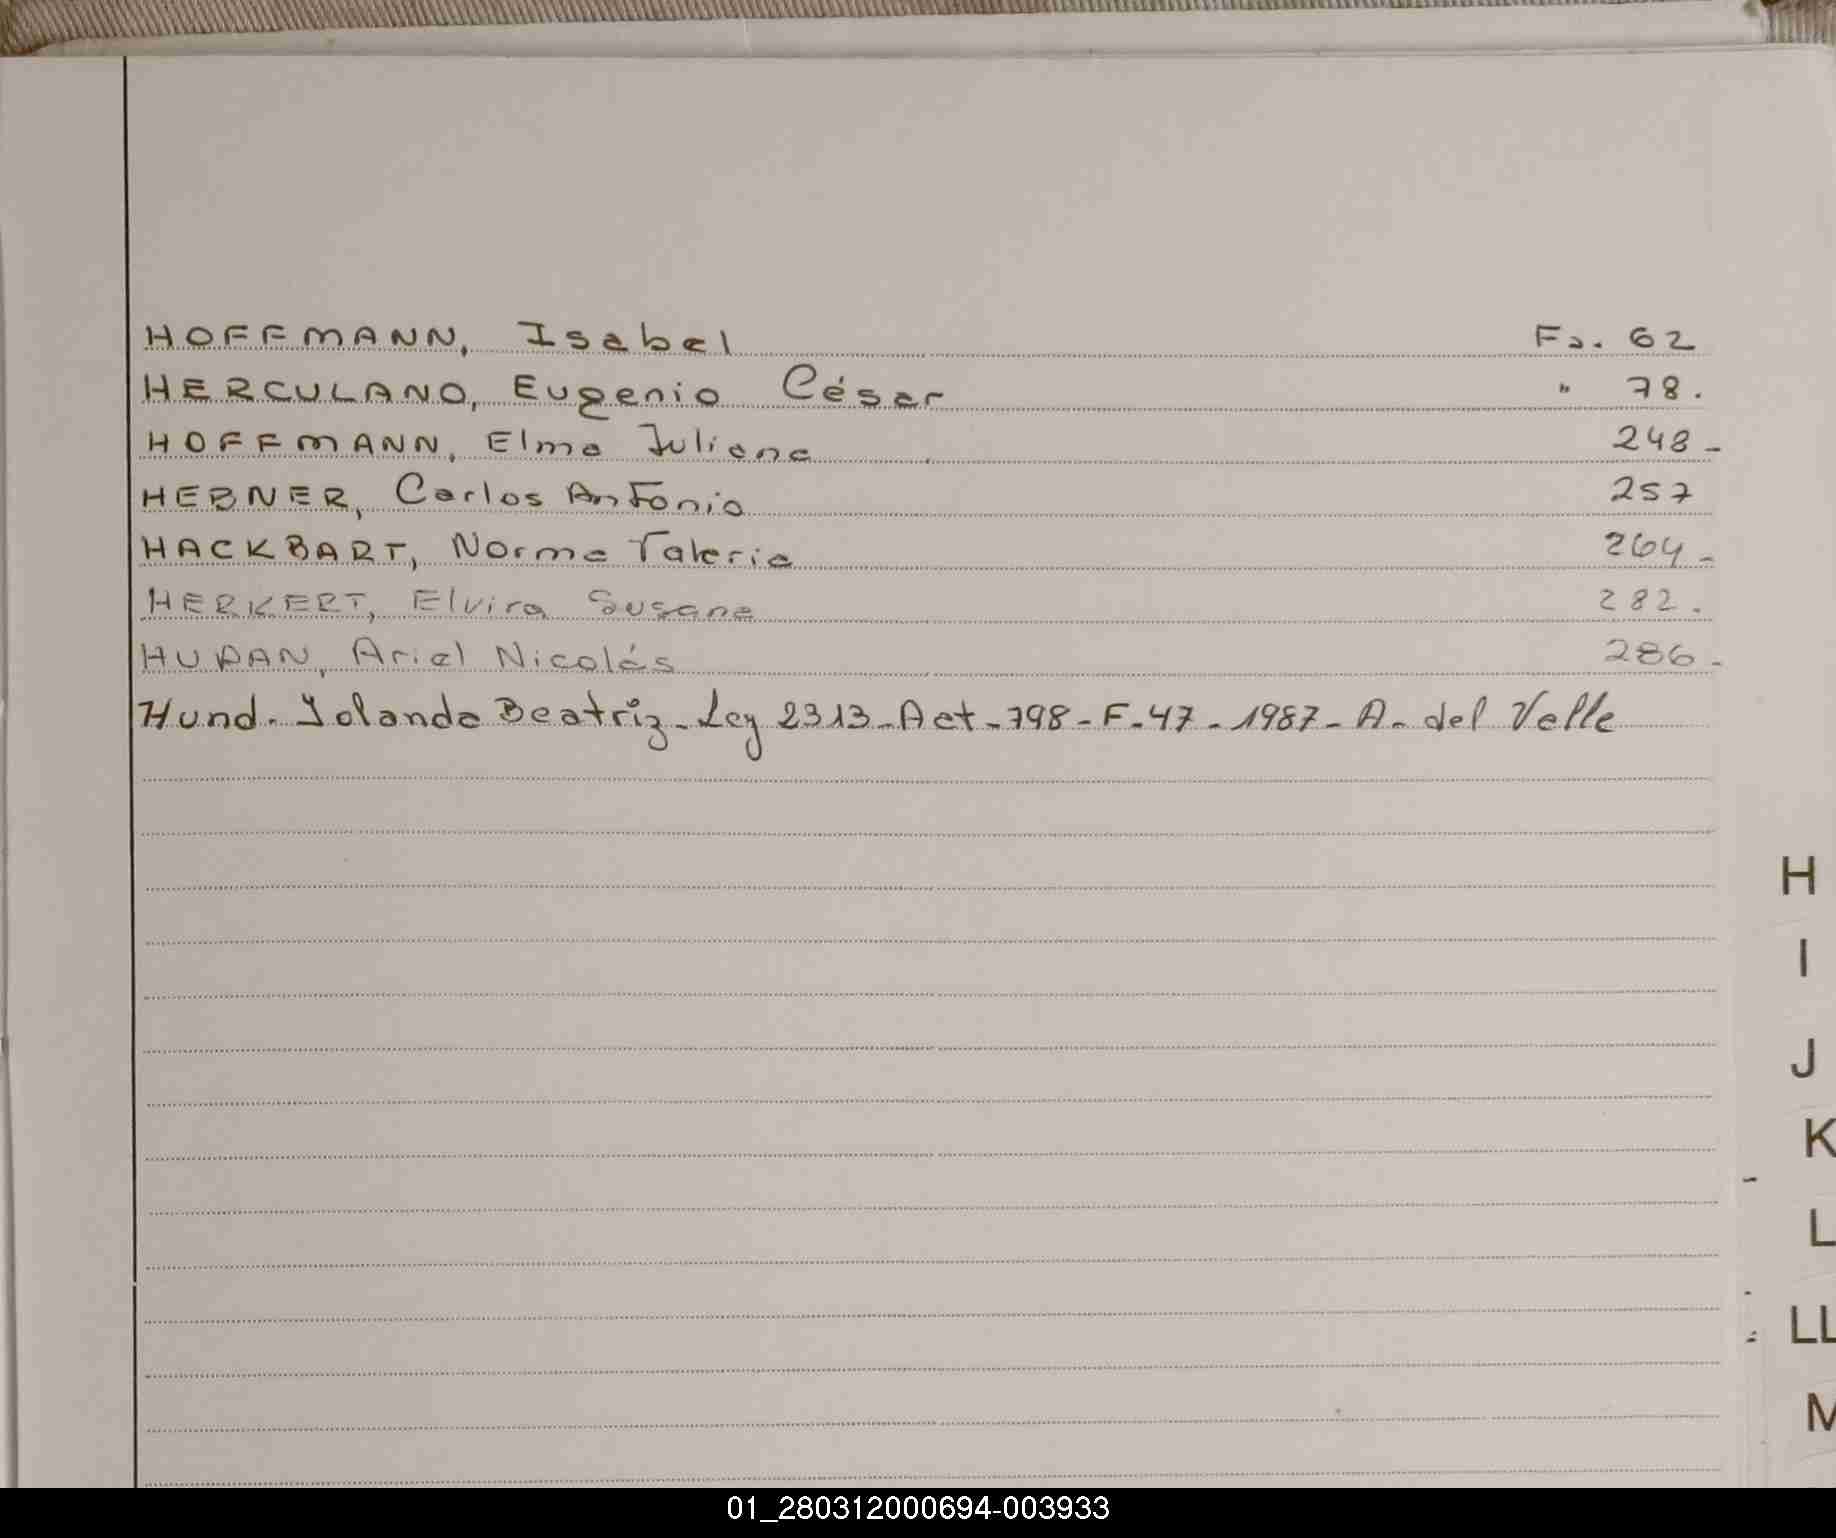 HOFFMANN, Isabel Fo. 62
HERCULANO, Eugenio César " 78.
HOFFMANN, Elma Juliana 248-
HEBNER, Carlos Antonio 257
HACKBART, Norma Valeria 264-
HERKERT, Elvira Susana 282.
HUDAN, Ariel Nicolás 286-
Hund. Yolanda Beatriz- Ley 2313-Act-798-F-47-1987-A. del Valle
H
I
J
K
L
LL
M
01_280312000694-003933